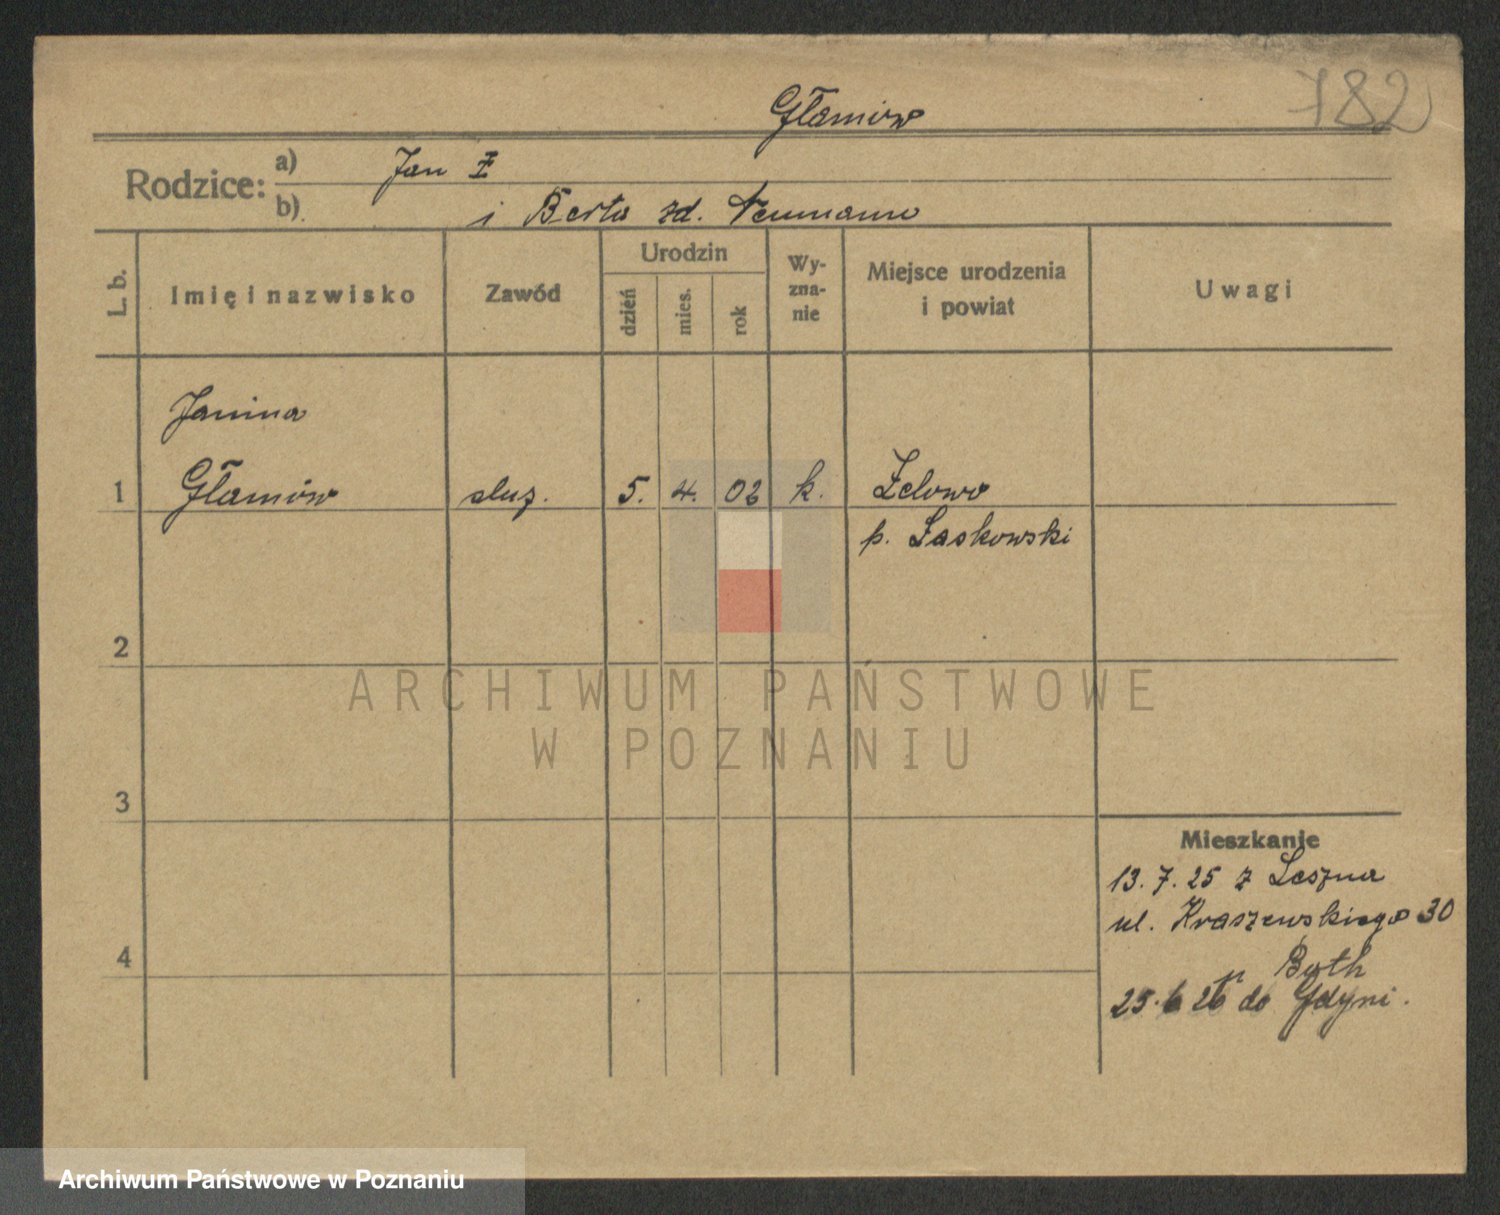 782
Głamiów
Rodzice: a) Jan
b) i Berta zd. Neumann
L. b.
Imię i nazwisko
Zawód
Urodzin
dzień
mies.
rok
Wy-
zna-
nie
Miejsce urodzenia
i powiat
Uwagi
Janina
1 Głamiów służ. 5. 4. 02 k. Zelowo
p. Łaskowski
2
ARCHIWUM PAŃSTWOWE
W POZNANIU
3
Mieszkanie
13.7.25 z Leszna
ul. Kraszewskiego 30
4
p Buth
25.6 26 do Gdyni.
Archiwum Państwowe w Poznaniu